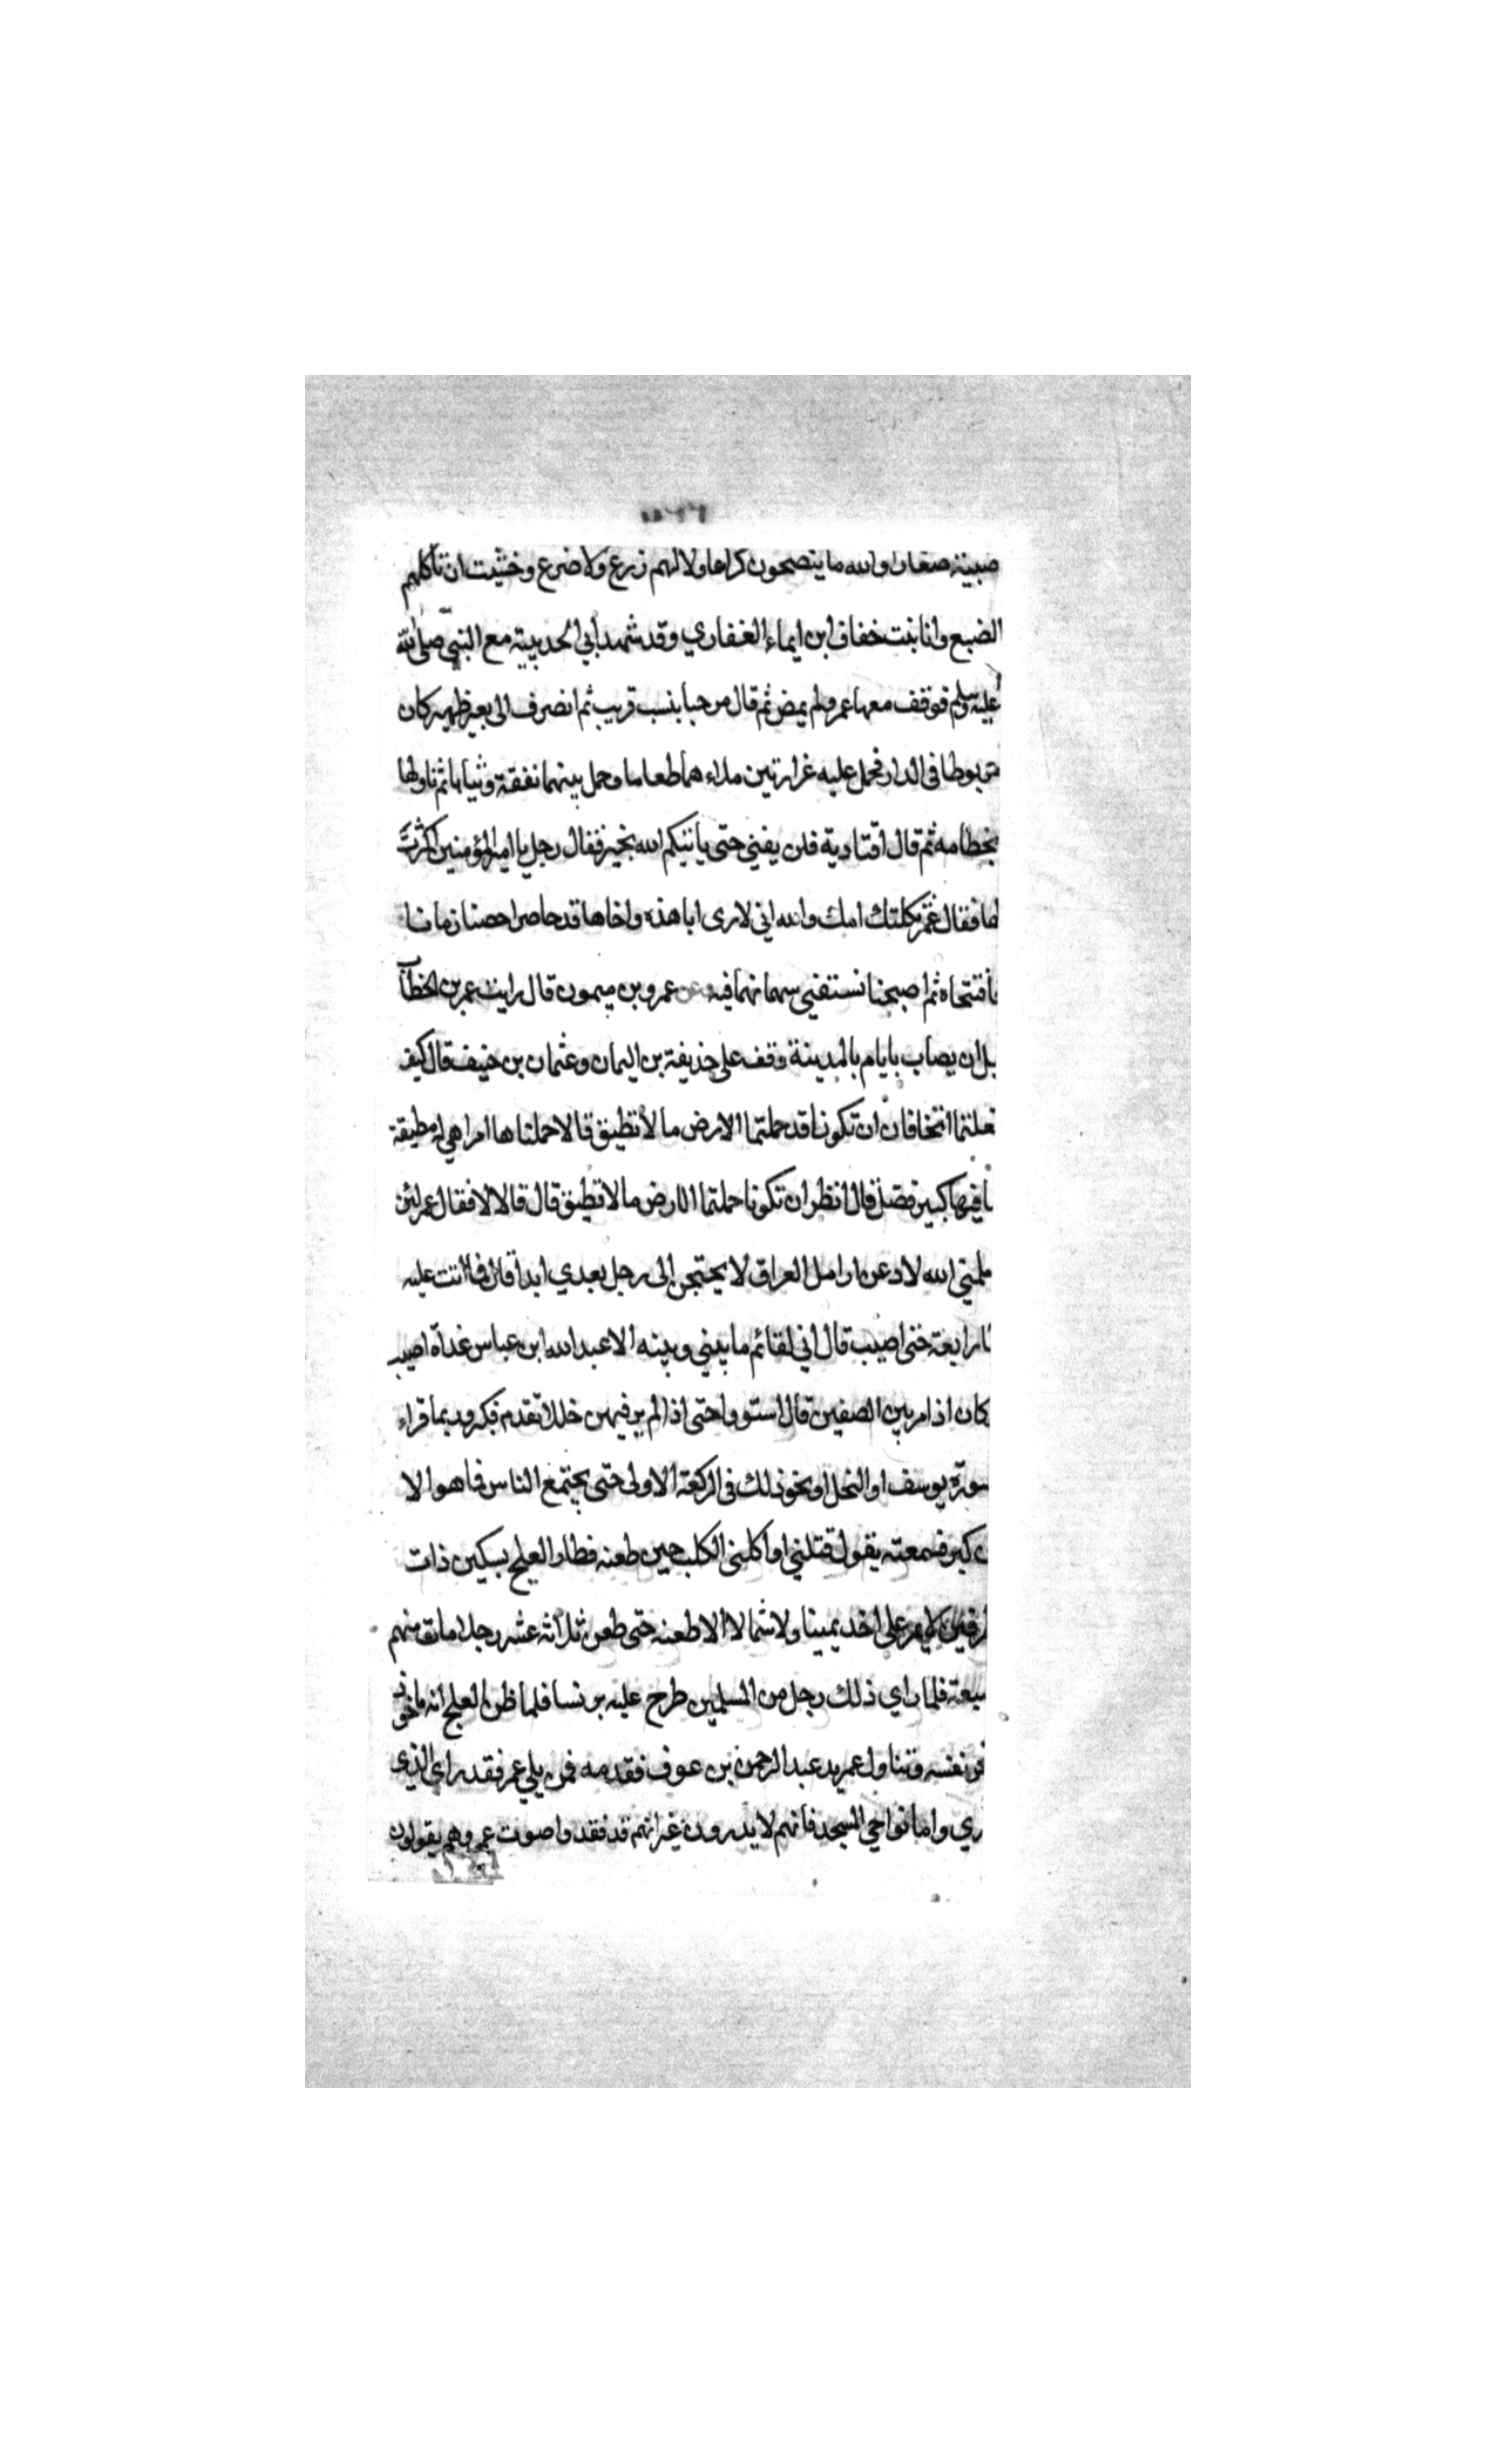 صبية صغارا والله ما ينضجون كراعا ولا لهم زرع ولا ضرع وخشيت ان تأكلهم
الضبع وانا بنت خفاف ابن ايماء الغفاري وقد شهد أبي الحديبية مع النبي صلى الله
عليه وسلم فوقف معها عمر ولم يمض ثم قال مرحبا بنسب قريب ثم انصرف الى بعير ظهير كان
مربوطا في الدار فحمل عليه غرارتين ملاءهما طعاما وحمل بينهما نفقة وثيابا ثم ناولها
بخطامه ثم قال اقتاديه فلن يفنى حتى يأتيكم الله بخير فقال رجل يا امير المؤمنين اكثرت
لها فقال عمر ثكلتك امك والله اني لارى ابا هذه واخاها قد حاصرا حصنا زمانا
فافتتحاه ثم اصبحنا نستفيء سهمانهما فيه وعن عمرو بن ميمون قال رايت عمر بن الخطاب
بل ان يصاب بايام بالمدينة وقف على حذيفة بن اليمان وعثمان بن حنيف قال كيف
فعلتما اتخافان ان تكونا قد حملتما الارض ما لا تطيق قالا حملناها امرا هي له مطيقة
ما فيها كبير فضل قال انظرا ان تكونا حملتما الارض ما لا تطيق قال قالا لا فقال عمر لئن
سلمني الله لادعن ارامل العراق لا يحتجن إلى رجل بعدي ابدا قال فما اتت عليه
الا رابعة حتى اصيب قال اني لقائم ما بيني وبينه الا عبد الله ابن عباس غداة اصيب
كان اذا مر بين الصفين قال استووا حتى اذا لم ير فيهن خللا تقدم فكبر وربما قراء
سورة يوسف او النحل او نحو ذلك في الركعة الاولى حتى يجتمع الناس فما هو الا
ن كبر فسمعته يقول قتلني او اكلني الكلب حين طعنه فطار العلج بسكين ذات
طرفين لا يمر على احد يمينا ولا شمالا الا طعنه حتى طعن ثلاثة عشر رجلا مات منهم
سبعة فلما راي ذلك رجل من المسلمين طرح عليه برنسا فلما ظن العلج انه ماخوذ
نحر نفسه وتناول عمر يد عبد الرحمن بن عوف فقدمه فمن يلي عمر فقد راى الذي
اري واما نواحي المسجد فانهم لا يدرون غير انهم قد فقدوا صوت عمر وهم يقولون